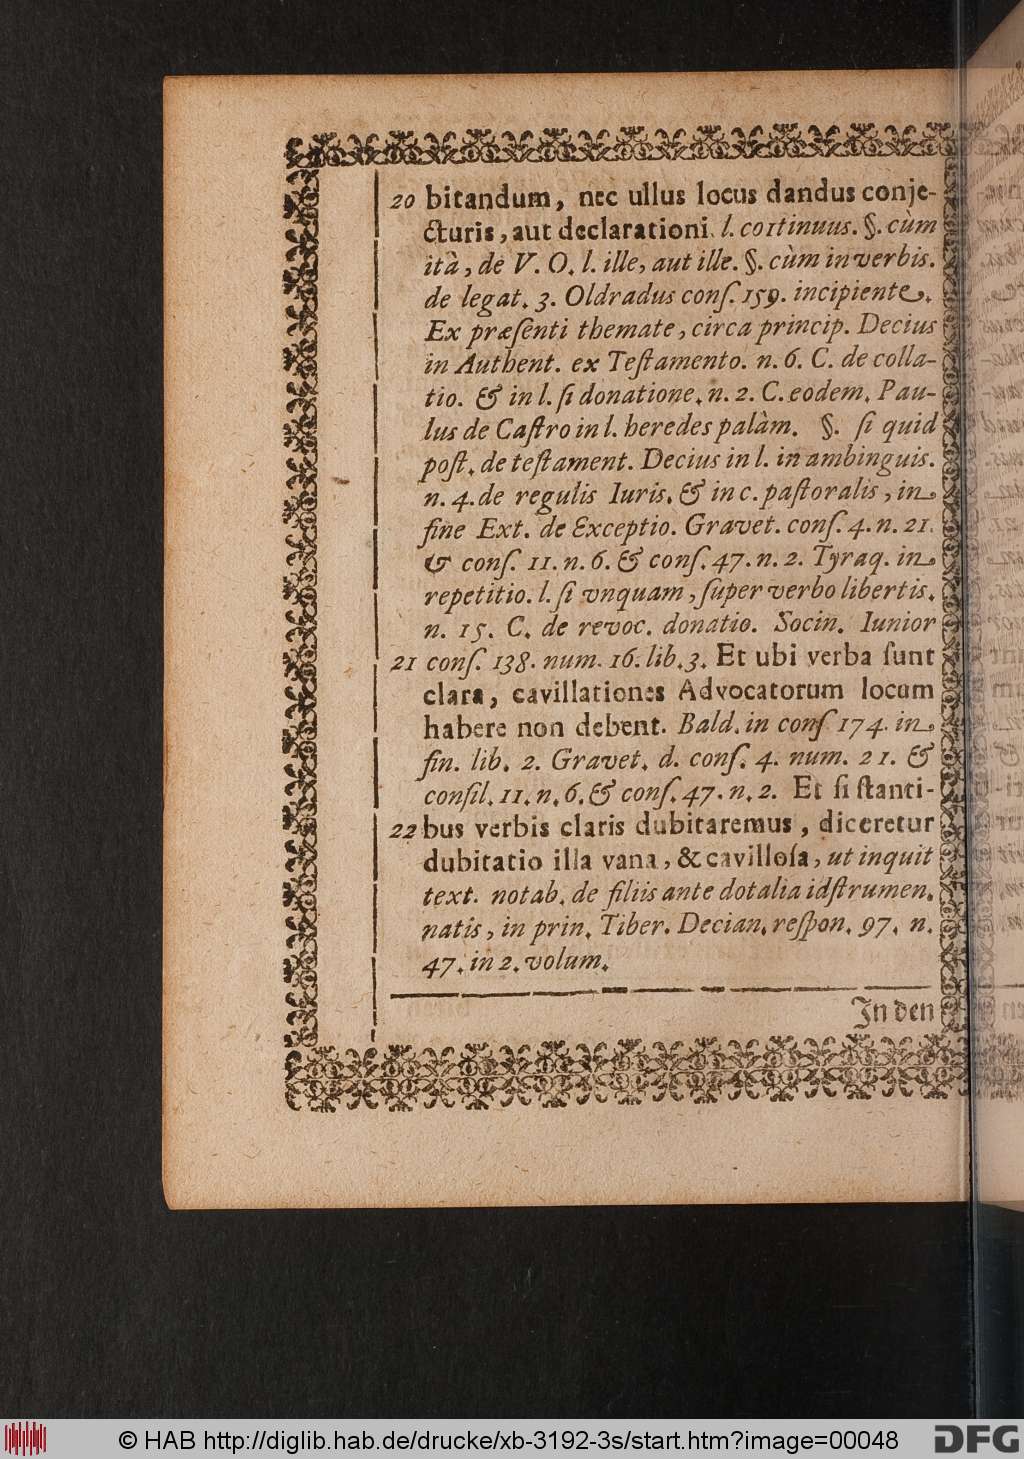 20 bitandum, nec ullus locus dandus conje-
cturis, aut declarationi. l. cortinuus. §. cùm
ità, de V. O. l. ille, aut ille. §. cùm in verbis.
de legat. 3. Oldradus conſ. 159. incipiente.
Ex præſenti themate, circa princip. Decius
in Authent. ex Teſtamento. n. 6. C. de colla-
tio. & in l. ſi donatione. n. 2. C. eodem. Pau-
lus de Caſtro in l. heredes palàm. §. ſi quid
poſt. de teſtament. Decius in l. in ambinguis.
n. 4. de regulis Iuris. & in c. paſtoralis, in
fine Ext. de Exceptio. Gravet. conſ. 4. n. 21.
& conſ. 11. n. 6. & conſ. 47. n. 2. Tyraq. in
repetitio. l. ſi vnquam, ſuper verbo libertis.
n. 15. C. de revoc. donatio. Socin. Iunior
21 conſ. 138. num. 16. lib. 3. Et ubi verba ſunt
clara, cavillationes Advocatorum locum
habere non debent. Bald. in conſ 174. in
fin. lib. 2. Gravet. d. conſ. 4. num. 21. &
conſil. 11. n. 6. & conſ. 47. n. 2. Et ſi ſtanti-
22 bus verbis claris dubitaremus, diceretur
dubitatio illa vana, & cavilloſa, ut inquit
text. notab. de filiis ante dotalia idſtrumen.
natis, in prin. Tiber. Decian. reſpon. 97. n.
47. in 2. volum.
In den
© HAB http://diglib.hab.de/drucke/xb-3192-3s/start.htm?image=00048
DFG